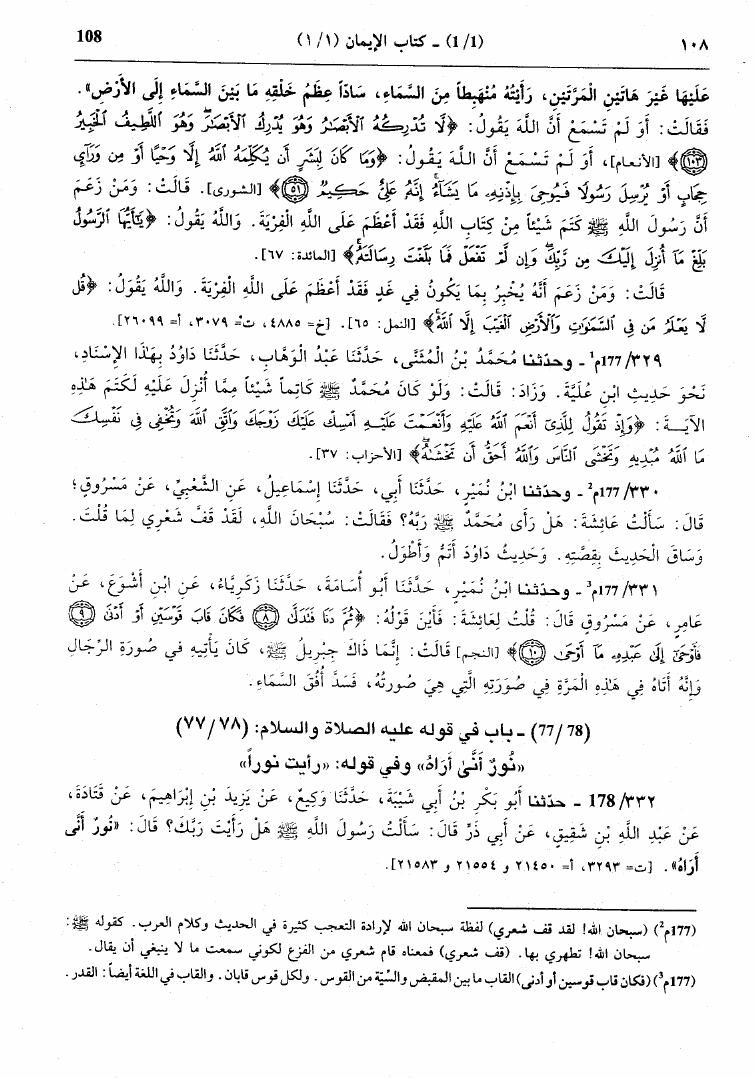 ١٠٨ (1/1) ـ كتاب الإيمان (١/١) 108
عَلَيْهَا غَيْرَ هَاتَيْنِ الْمَرَّتَيْنِ، رَأَيْتُهُ مُنْهَبِطاً مِنَ السَّمَاءِ، سَادّاً عِظَمُ خَلْقِهِ مَا بَيْنَ السَّمَاءِ إِلَى الأَرْضِ».
فَقَالَتْ: أَوَ لَمْ تَسْمَعْ أَنَّ اللَّهَ يَقُولُ: ﴿لَّا تُدْرِكُهُ ٱلْأَبْصَٰرُ وَهُوَ يُدْرِكُ ٱلْأَبْصَٰرَۖ وَهُوَ ٱللَّطِيفُ ٱلْخَبِيرُ
﴿١٠٣﴾﴾ [الأنعام]، أَوَ لَمْ تَسْمَعْ أَنَّ اللَّهَ يَقُولُ: ﴿وَمَا كَانَ لِبَشَرٍ أَن يُكَلِّمَهُ ٱللَّهُ إِلَّا وَحْيًا أَوْ مِن وَرَآئِ
حِجَابٍ أَوْ يُرْسِلَ رَسُولًا فَيُوحِىَ بِإِذْنِهِۦ مَا يَشَآءُۚ إِنَّهُۥ عَلِىٌّ حَكِيمٌ ﴿٥١﴾﴾ [الشورى]. قَالَتْ: وَمَنْ زَعَمَ
أَنَّ رَسُولَ اللَّهِ ﷺ كَتَمَ شَيْئاً مِنْ كِتَابِ اللَّهِ فَقَدْ أَعْظَمَ عَلَى اللَّهِ الْفِرْيَةَ. وَاللَّهُ يَقُولُ: ﴿يَٰٓأَيُّهَا ٱلرَّسُولُ
بَلِّغْ مَآ أُنزِلَ إِلَيْكَ مِن رَّبِّكَۖ وَإِن لَّمْ تَفْعَلْ فَمَا بَلَّغْتَ رِسَالَتَهُۥۚ﴾ [المائدة: ٦٧].
قَالَتْ: وَمَنْ زَعَمَ أَنَّهُ يُخْبِرُ بِمَا يَكُونُ فِي غَدٍ فَقَدْ أَعْظَمَ عَلَى اللَّهِ الْفِرْيَةَ. وَاللَّهُ يَقُولُ: ﴿قُل
لَّا يَعْلَمُ مَن فِى ٱلسَّمَٰوَٰتِ وَٱلْأَرْضِ ٱلْغَيْبَ إِلَّا ٱللَّهُۚ﴾ [النمل: ٦٥]. [خ= ٤٨٨٥، ت= ٣٠٧٩، أ= ٢٦٠٩٩].
177/٣٢٩م¹ ـ وحدّثنا مُحَمَّدُ بْنُ الْمُثَنَّى، حَدَّثَنَا عَبْدُ الْوَهَّابِ، حَدَّثَنَا دَاوُدُ بِهَٰذَا الإِسْنَادِ،
نَحْوَ حَدِيثِ ابْنِ عُلَيَّةَ. وَزَادَ: قَالَتْ: وَلَوْ كَانَ مُحَمَّدٌ ﷺ كَاتِماً شَيْئاً مِمَّا أُنْزِلَ عَلَيْهِ لَكَتَمَ هَٰذِهِ
الآيَةَ: ﴿وَإِذْ تَقُولُ لِلَّذِىٓ أَنْعَمَ ٱللَّهُ عَلَيْهِ وَأَنْعَمْتَ عَلَيْهِ أَمْسِكْ عَلَيْكَ زَوْجَكَ وَٱتَّقِ ٱللَّهَ وَتُخْفِى فِى نَفْسِكَ
مَا ٱللَّهُ مُبْدِيهِ وَتَخْشَى ٱلنَّاسَ وَٱللَّهُ أَحَقُّ أَن تَخْشَىٰهُۖ﴾ [الأحزاب: ٣٧].
177/٣٣٠م² ـ وحدّثنا ابْنُ نُمَيْرٍ، حَدَّثَنَا أَبِي، حَدَّثَنَا إِسْمَاعِيلُ، عَنِ الشَّعْبِيِّ، عَنْ مَسْرُوقٍ؛
قَالَ: سَأَلْتُ عَائِشَةَ: هَلْ رَأَى مُحَمَّدٌ ﷺ رَبَّهُ؟ فَقَالَتْ: سُبْحَانَ اللَّهِ، لَقَدْ قَفَّ شَعْرِي لِمَا قُلْتَ.
وَسَاقَ الْحَدِيثَ بِقِصَّتِهِ. وَحَدِيثُ دَاوُدَ أَتَمُّ وَأَطْوَلُ.
177/٣٣١م³ ـ وحدّثنا ابْنُ نُمَيْرٍ، حَدَّثَنَا أَبُو أُسَامَةَ، حَدَّثَنَا زَكَرِيَّاءُ، عَنِ ابْنِ أَشْوَعَ، عَنْ
عَامِرٍ، عَنْ مَسْرُوقٍ قَالَ: قُلْتُ لِعَائِشَةَ: فَأَيْنَ قَوْلُهُ: ﴿ثُمَّ دَنَا فَتَدَلَّىٰ ﴿٨﴾ فَكَانَ قَابَ قَوْسَيْنِ أَوْ أَدْنَىٰ ﴿٩﴾
فَأَوْحَىٰٓ إِلَىٰ عَبْدِهِۦ مَآ أَوْحَىٰ ﴿١٠﴾﴾ [النجم] قَالَتْ: إِنَّمَا ذَاكَ جِبْرِيلُ ﷺ، كَانَ يَأْتِيهِ فِي صُورَةِ الرِّجَالِ
وَإِنَّهُ أَتَاهُ فِي هَٰذِهِ الْمَرَّةِ فِي صُورَتِهِ الَّتِي هِيَ صُورَتُهُ، فَسَدَّ أُفُقَ السَّمَاءِ.
(77/78) ـ باب في قوله عليه الصلاة والسلام: (٧٧/٧٨)
«نُورٌ أَنَّىٰ أَرَاهُ» وفي قوله: «رأيت نوراً»
178/٣٣٢ ـ حدّثنا أَبُو بَكْرِ بْنُ أَبِي شَيْبَةَ، حَدَّثَنَا وَكِيعٌ، عَنْ يَزِيدَ بْنِ إِبْرَاهِيمَ، عَنْ قَتَادَةَ،
عَنْ عَبْدِ اللَّهِ بْنِ شَقِيقٍ، عَنْ أَبِي ذَرٍّ قَالَ: سَأَلْتُ رَسُولَ اللَّهِ ﷺ هَلْ رَأَيْتَ رَبَّكَ؟ قَالَ: «نُورٌ أَنَّى
أَرَاهُ». [ت= ٣٢٩٣، أ= ٢١٤٥٠ و ٢١٥٥٤ و ٢١٥٨٣].
(177م²) (سبحان الله! لقد قف شعري) لفظة سبحان الله لإرادة التعجب كثيرة في الحديث وكلام العرب. كقوله ﷺ:
سبحان الله! تطهري بها. (قف شعري) فمعناه قام شعري من الفزع لكوني سمعت ما لا ينبغي أن يقال.
(177م³) (فكان قاب قوسين أو أدنى) القاب ما بين المقبض والسِّيَة من القوس. ولكل قوس قابان. والقاب في اللغة أيضاً: القدر.